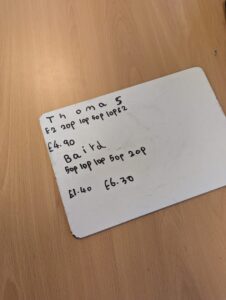 Thomas
£2 20p 10p 50p 10p £2
£4.90
Baird
50p 10p 10p 50p 20p
£1.40 £6.30